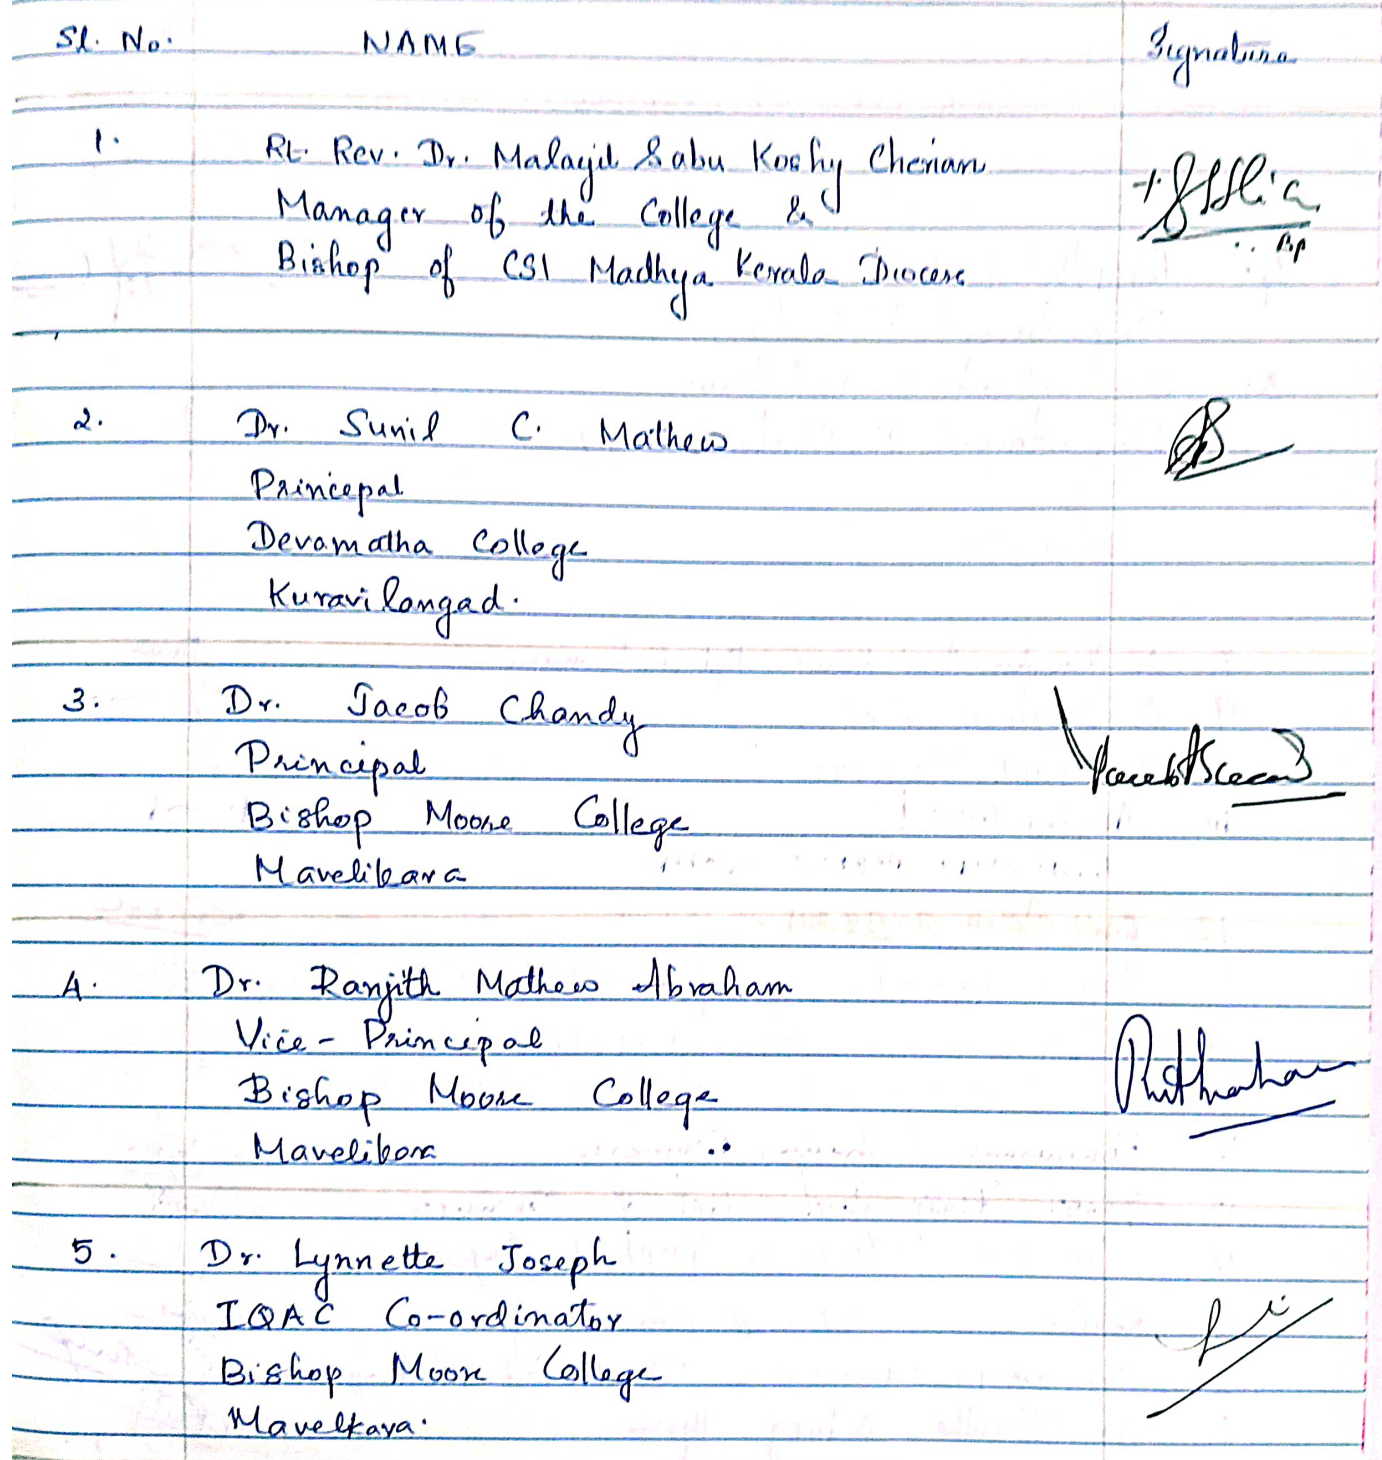 Sl. No. NAME Signature
1. Rt. Rev. Dr. Malayil Sabu Koshy Cherian
Manager of the College &
Bishop of CSI Madhya Kerala Diocese
2. Dr. Sunil C. Mathew
Principal
Devamatha College
Kuravilangad.
3. Dr. Jacob Chandy
Principal
Bishop Moore College
Mavelikara
4. Dr. Ranjith Mathew Abraham
Vice-Principal
Bishop Moore College
Mavelikara
5. Dr. Lynnette Joseph
IQAC Co-ordinator
Bishop Moore College
Mavelkara.